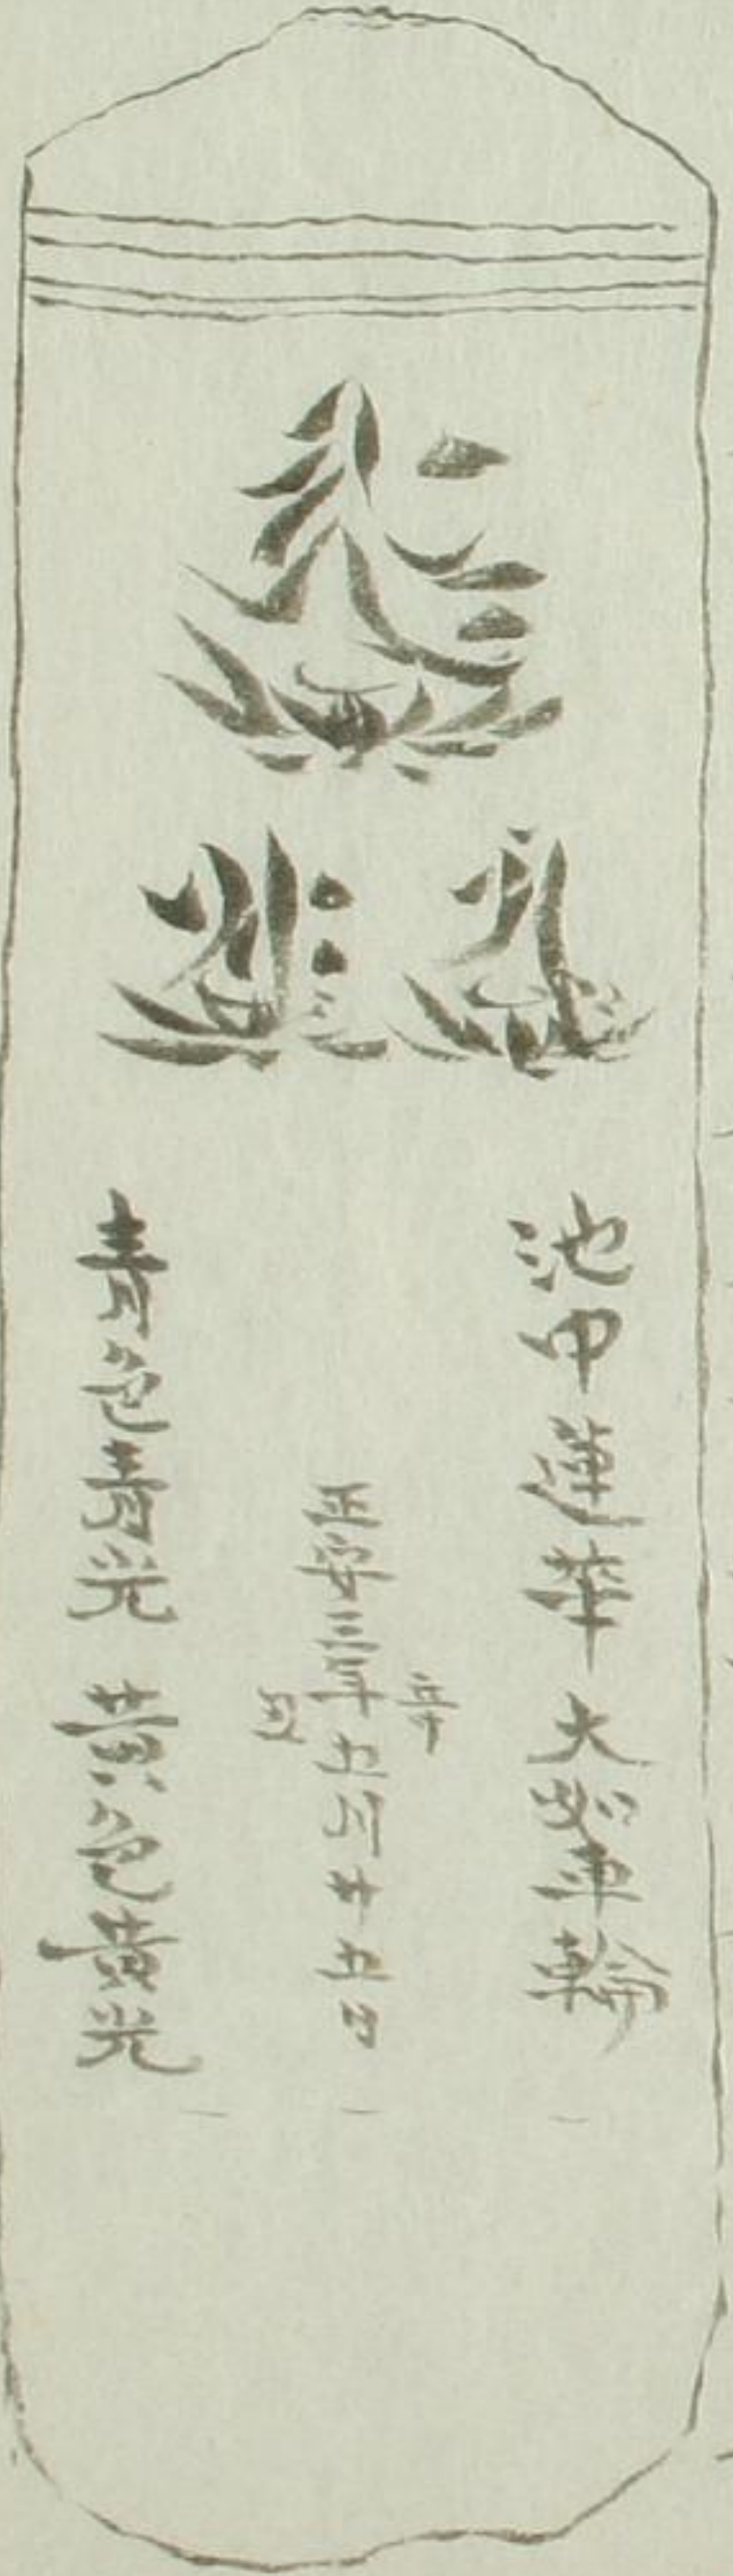 𑖮𑖿𑖨𑖱𑖾
𑖭 𑖭𑖾
池中蓮華 大如車輪
正安三年辛丑五月廿五日
青色青光 黄色黄光